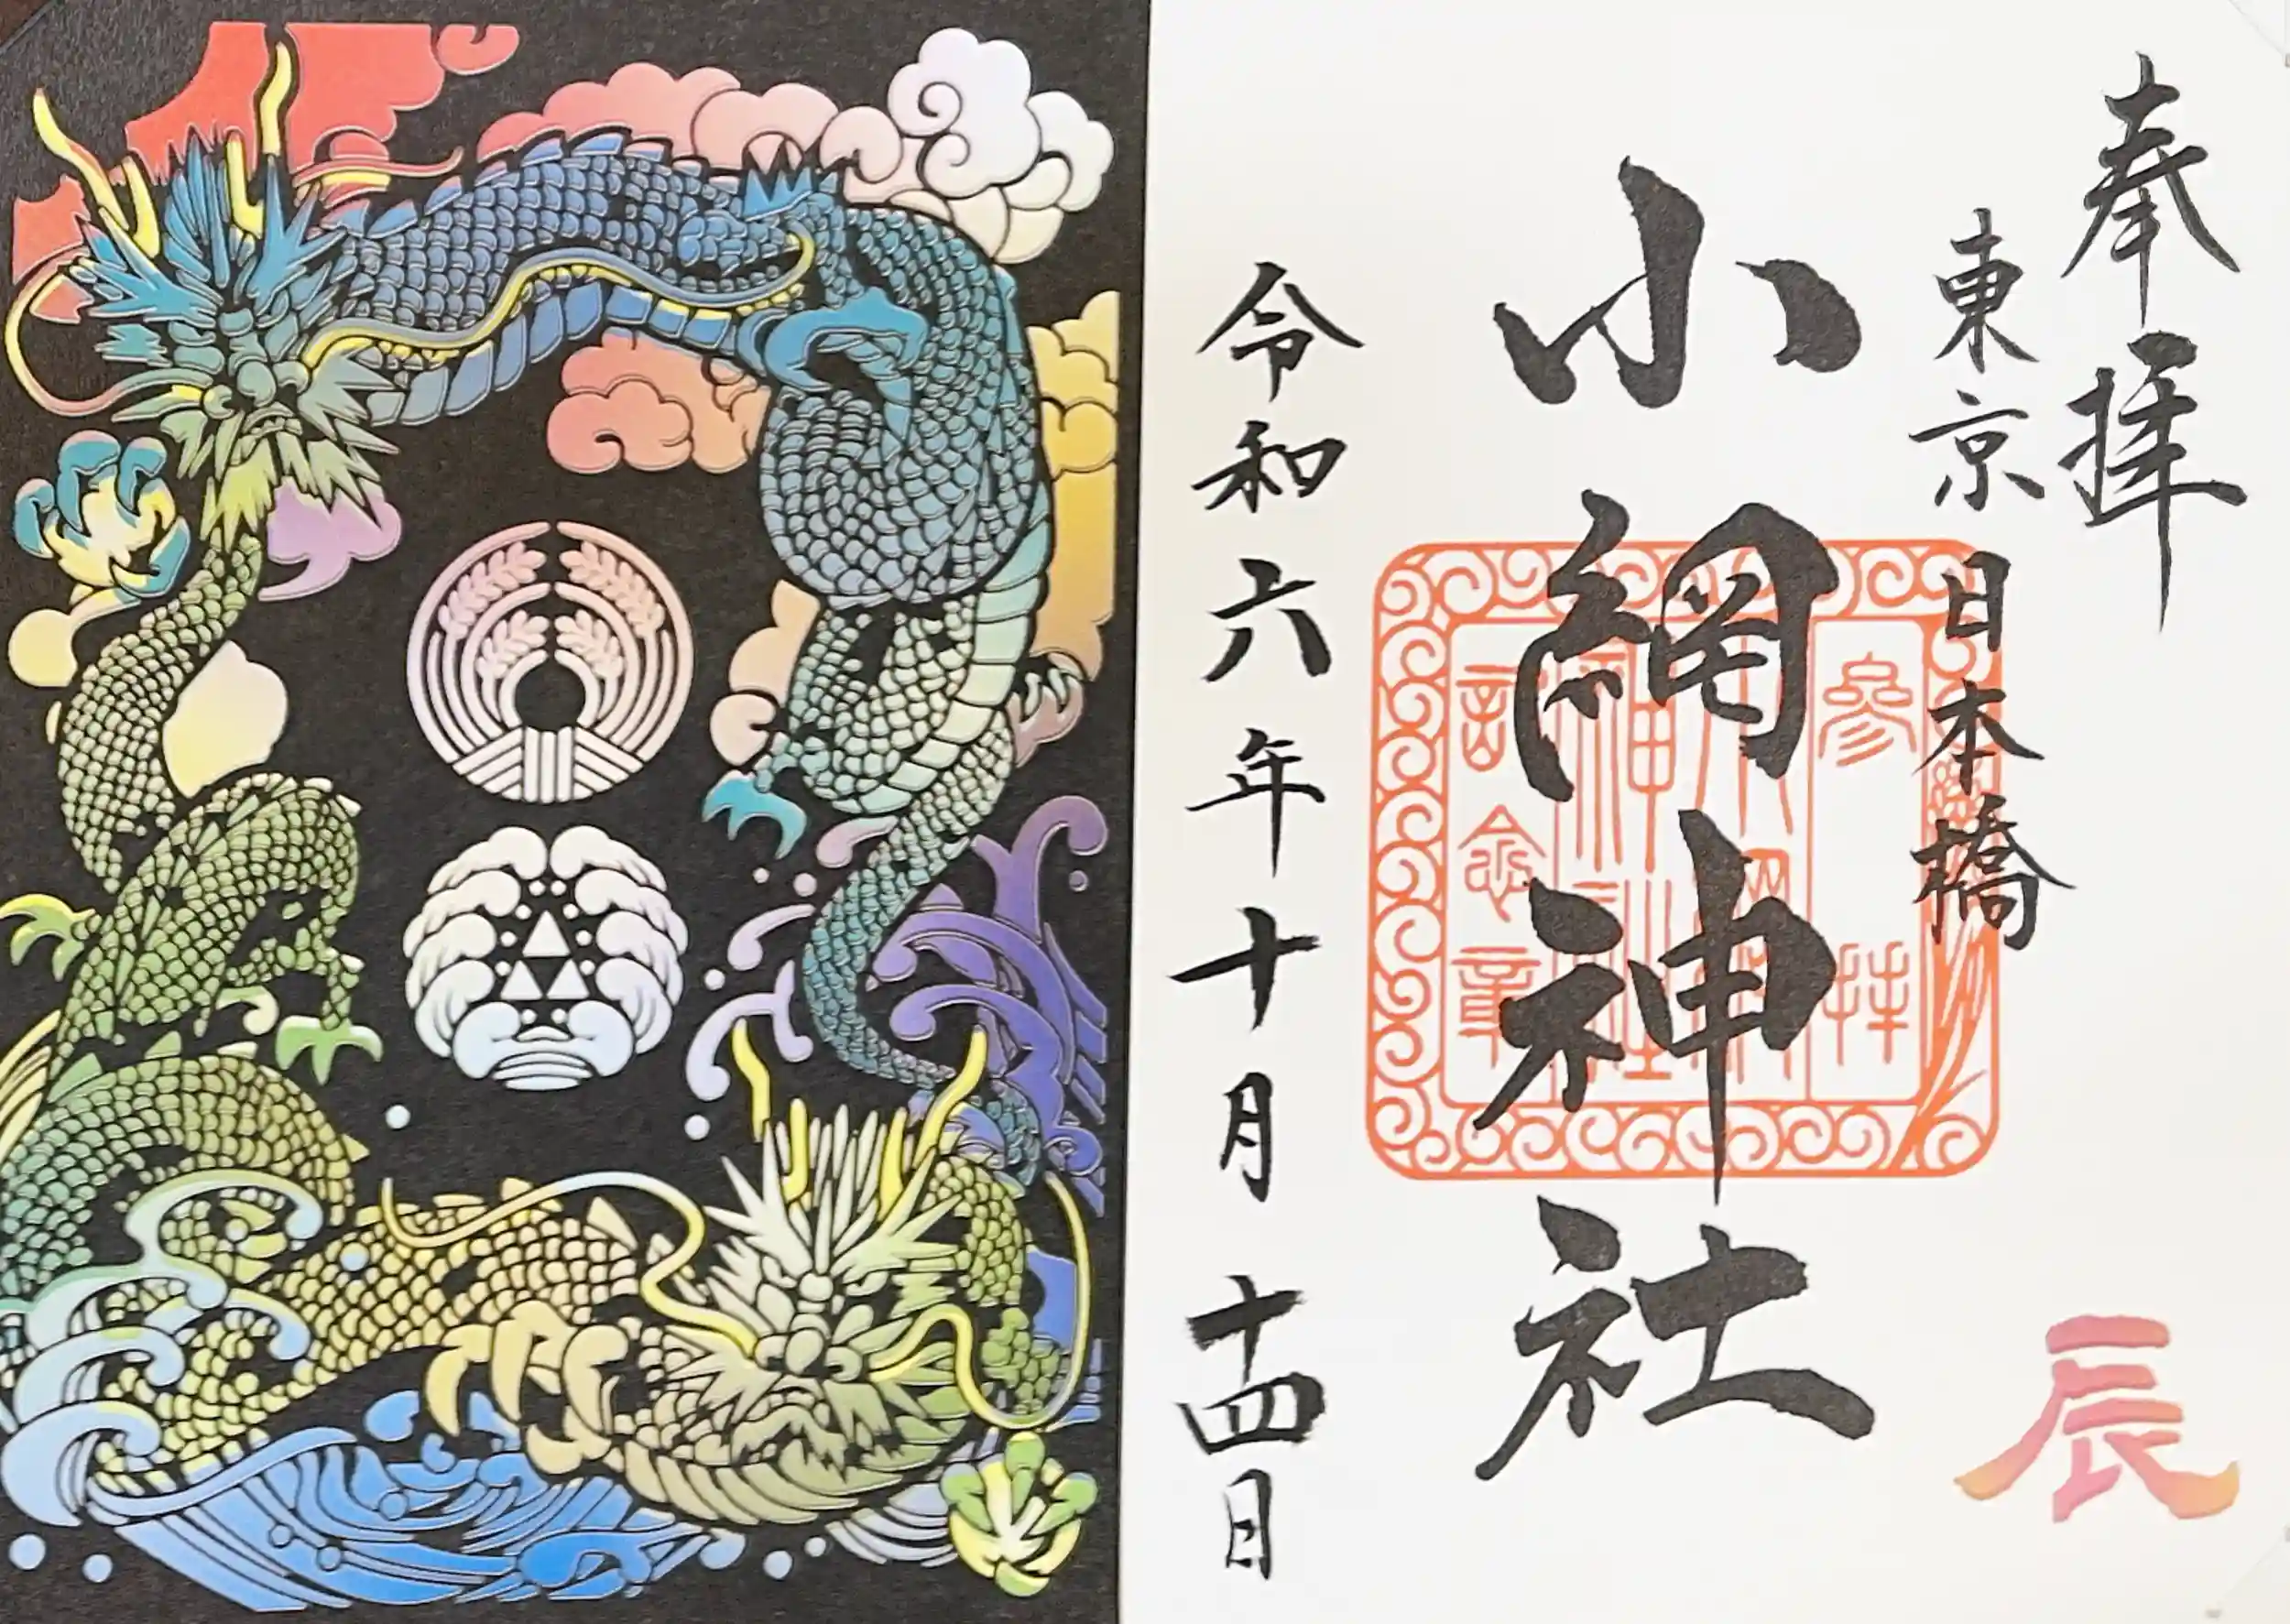 奉拝
東京日本橋
小網神社
参拝
小網
神社
記念章
令和六年十月十四日
辰